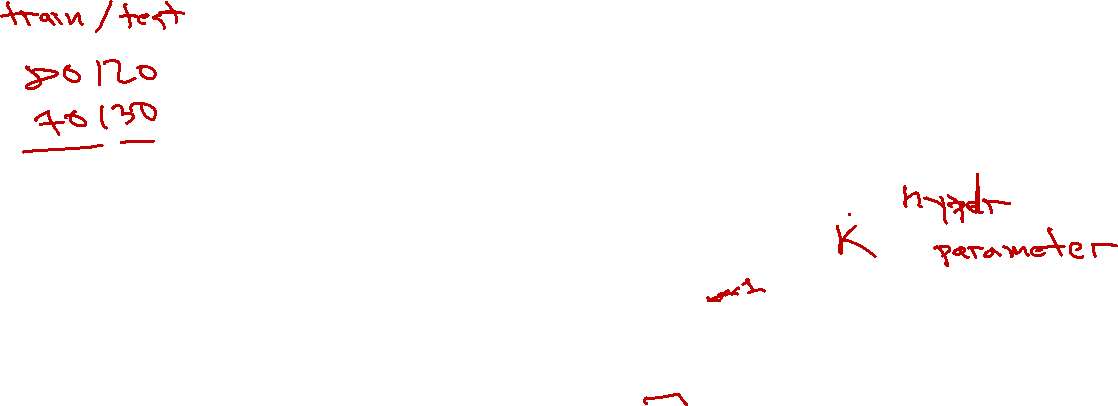 train / test
80 | 20
70 | 30
hyper
K
parameter